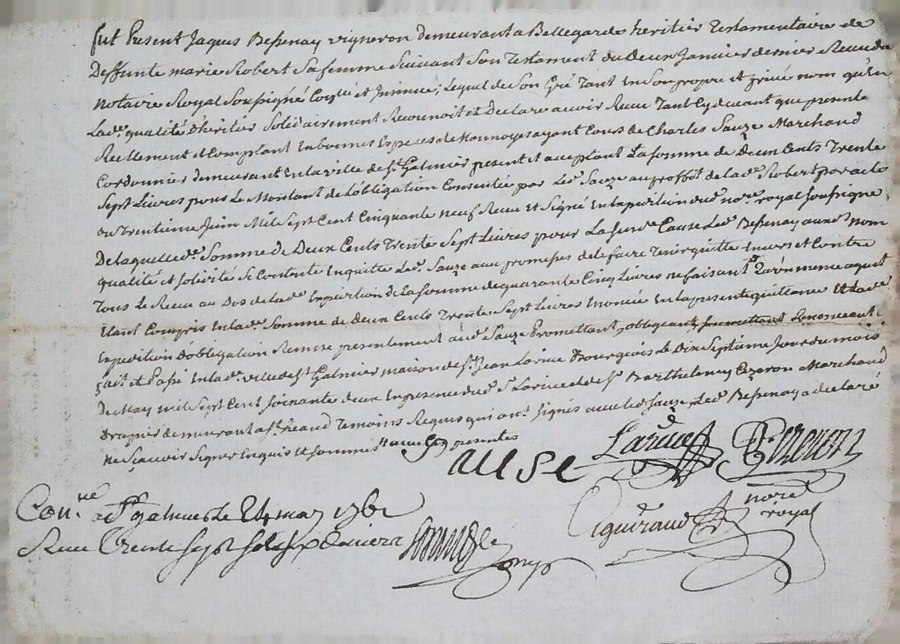 fut Présent Jaques Bessenay vigneron demeurant a Bellegarde héritier Testamentaire de
Deffunte marie Robert sa femme Suivant Son Testament du deux Janvier dernier Receu du
notaire Royal Soussigné Con.lé et Insinué ; lequel de Son Gré Tant En Son propre et privé nom qu'en
Lad.e qualité D'héritier Solidairement Reconnoit et Declare avoir Receu Tant Cy devant que présente
Reellement et Comptant En bonnes Especes de Monnoye ayant Cours de Charles Sauze Marchand
Cordonnier demeurant En la ville de St Galmier présent et acceptant La somme de Deux Cents Trente
Sept Livres pour le Montant de L'obligation Consentie par led. Sauze au proffit de lad. Robert par acte
du Trentieme Juin Mil Sept Cent Cinquante neuf Receu et Signé En Expedition dud. no.re royal Soussigné
De laquelle d. Somme de Deux Cents Trente Sept Livres pour La Susd. Cause Led. Bessenay aux d. nom
qualité et solidité Se Contente En quitte led. Sauze aux promesses de le faire Tenir quitte Envers et Contre
Tous Le Receu au Dos de lad. Expedition de La somme de quarante Cinq Livres ne faisant
Etant Compris En lad. Somme de Deux Cents Trente Sept Livres Enoncée En la presente quittance Et lad.
Expedition D'obligation Remise presentement aud. Sauze Promettant, obligeant, soumettant Renonceant
fait et Passé En lad. ville de St Galmier maison de Sr. Jean Larue Bourgeois Le Dix Septieme Jour du mois
De May mil Sept Cent soixante deux En presence dud. Sr. Larue et de Sr. Barthelemy Ezeron Marchand
Drapier demeurant a St. héaud Temoins Requis qui ont signés avec led. Sauze, Led. Bessenay a declaré
ne Sçavoir Signer Enquis et sommé
au Se Larue Ezeron
Con.lé a St galmier le 24 may 1762
Receu Trente Sept sols six deniers
Aguiraud no.re royal